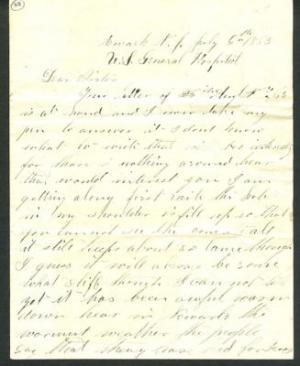 Newark N. J. July 6th 1863
U.S. General Hospital
Dear Sister
Your letter of
is at hand and I now take my
pen to answer it I dont know
what to write that is be interesting
for there is nothing around hear
that would interest you I am
getting along first rate the hole
in my shoulder is fill up so that
you cannot see the at all
it still keeps about so lame though
I guess it will always be some
what stiff though I can not
got it has been awful warm
down hear in Newark the
warmest weather the people
say that they have had for